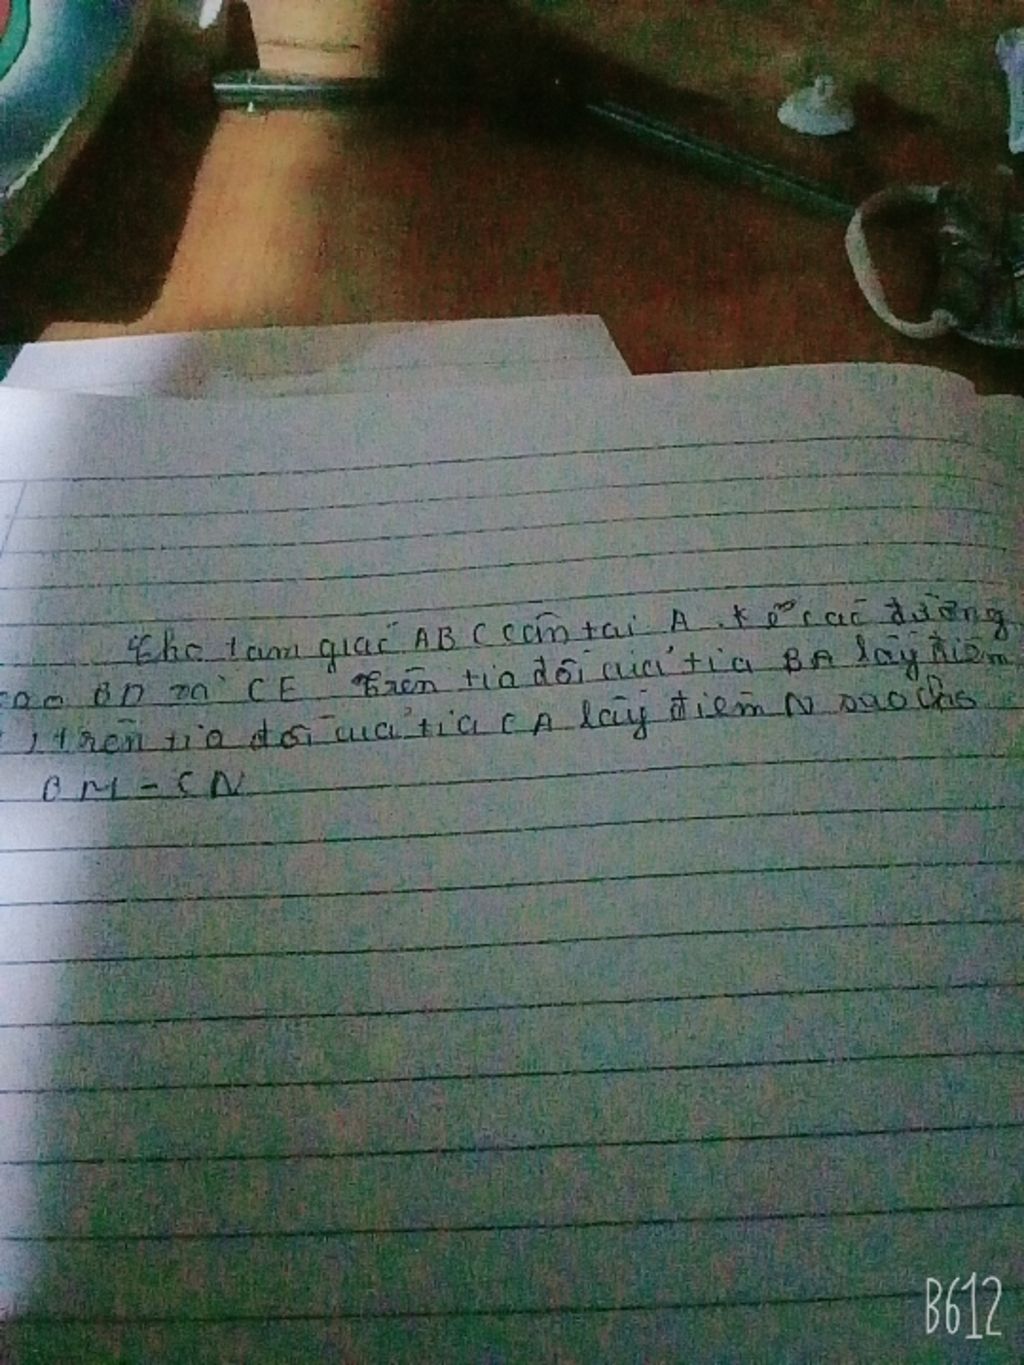 Cho tam giác ABC cân tại A. Kẻ các đường
cao BD và CE Trên tia đối của tia BA lấy điểm
, trên tia đối của tia CA lấy điểm N sao cho
BM = CN
B612